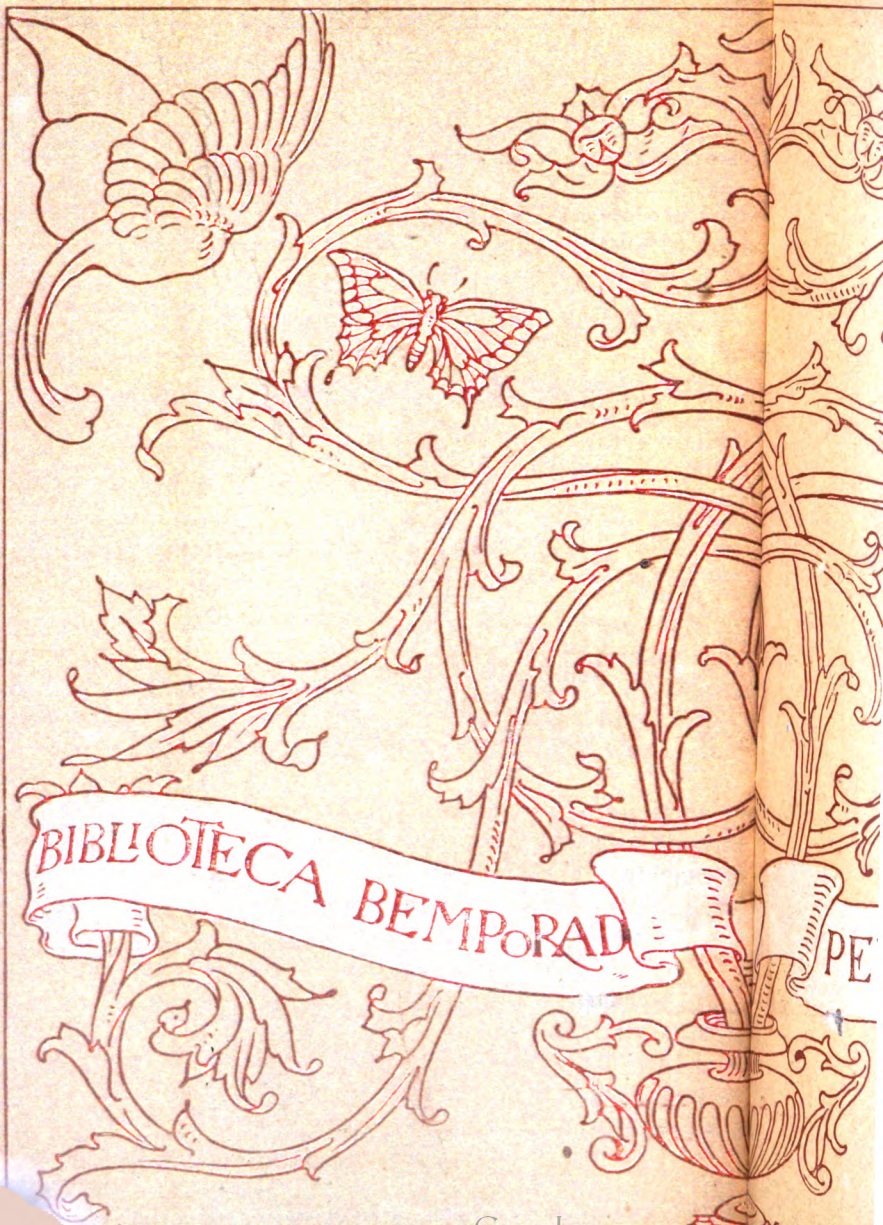 BIBLIOTECA BEMPORAD
PE